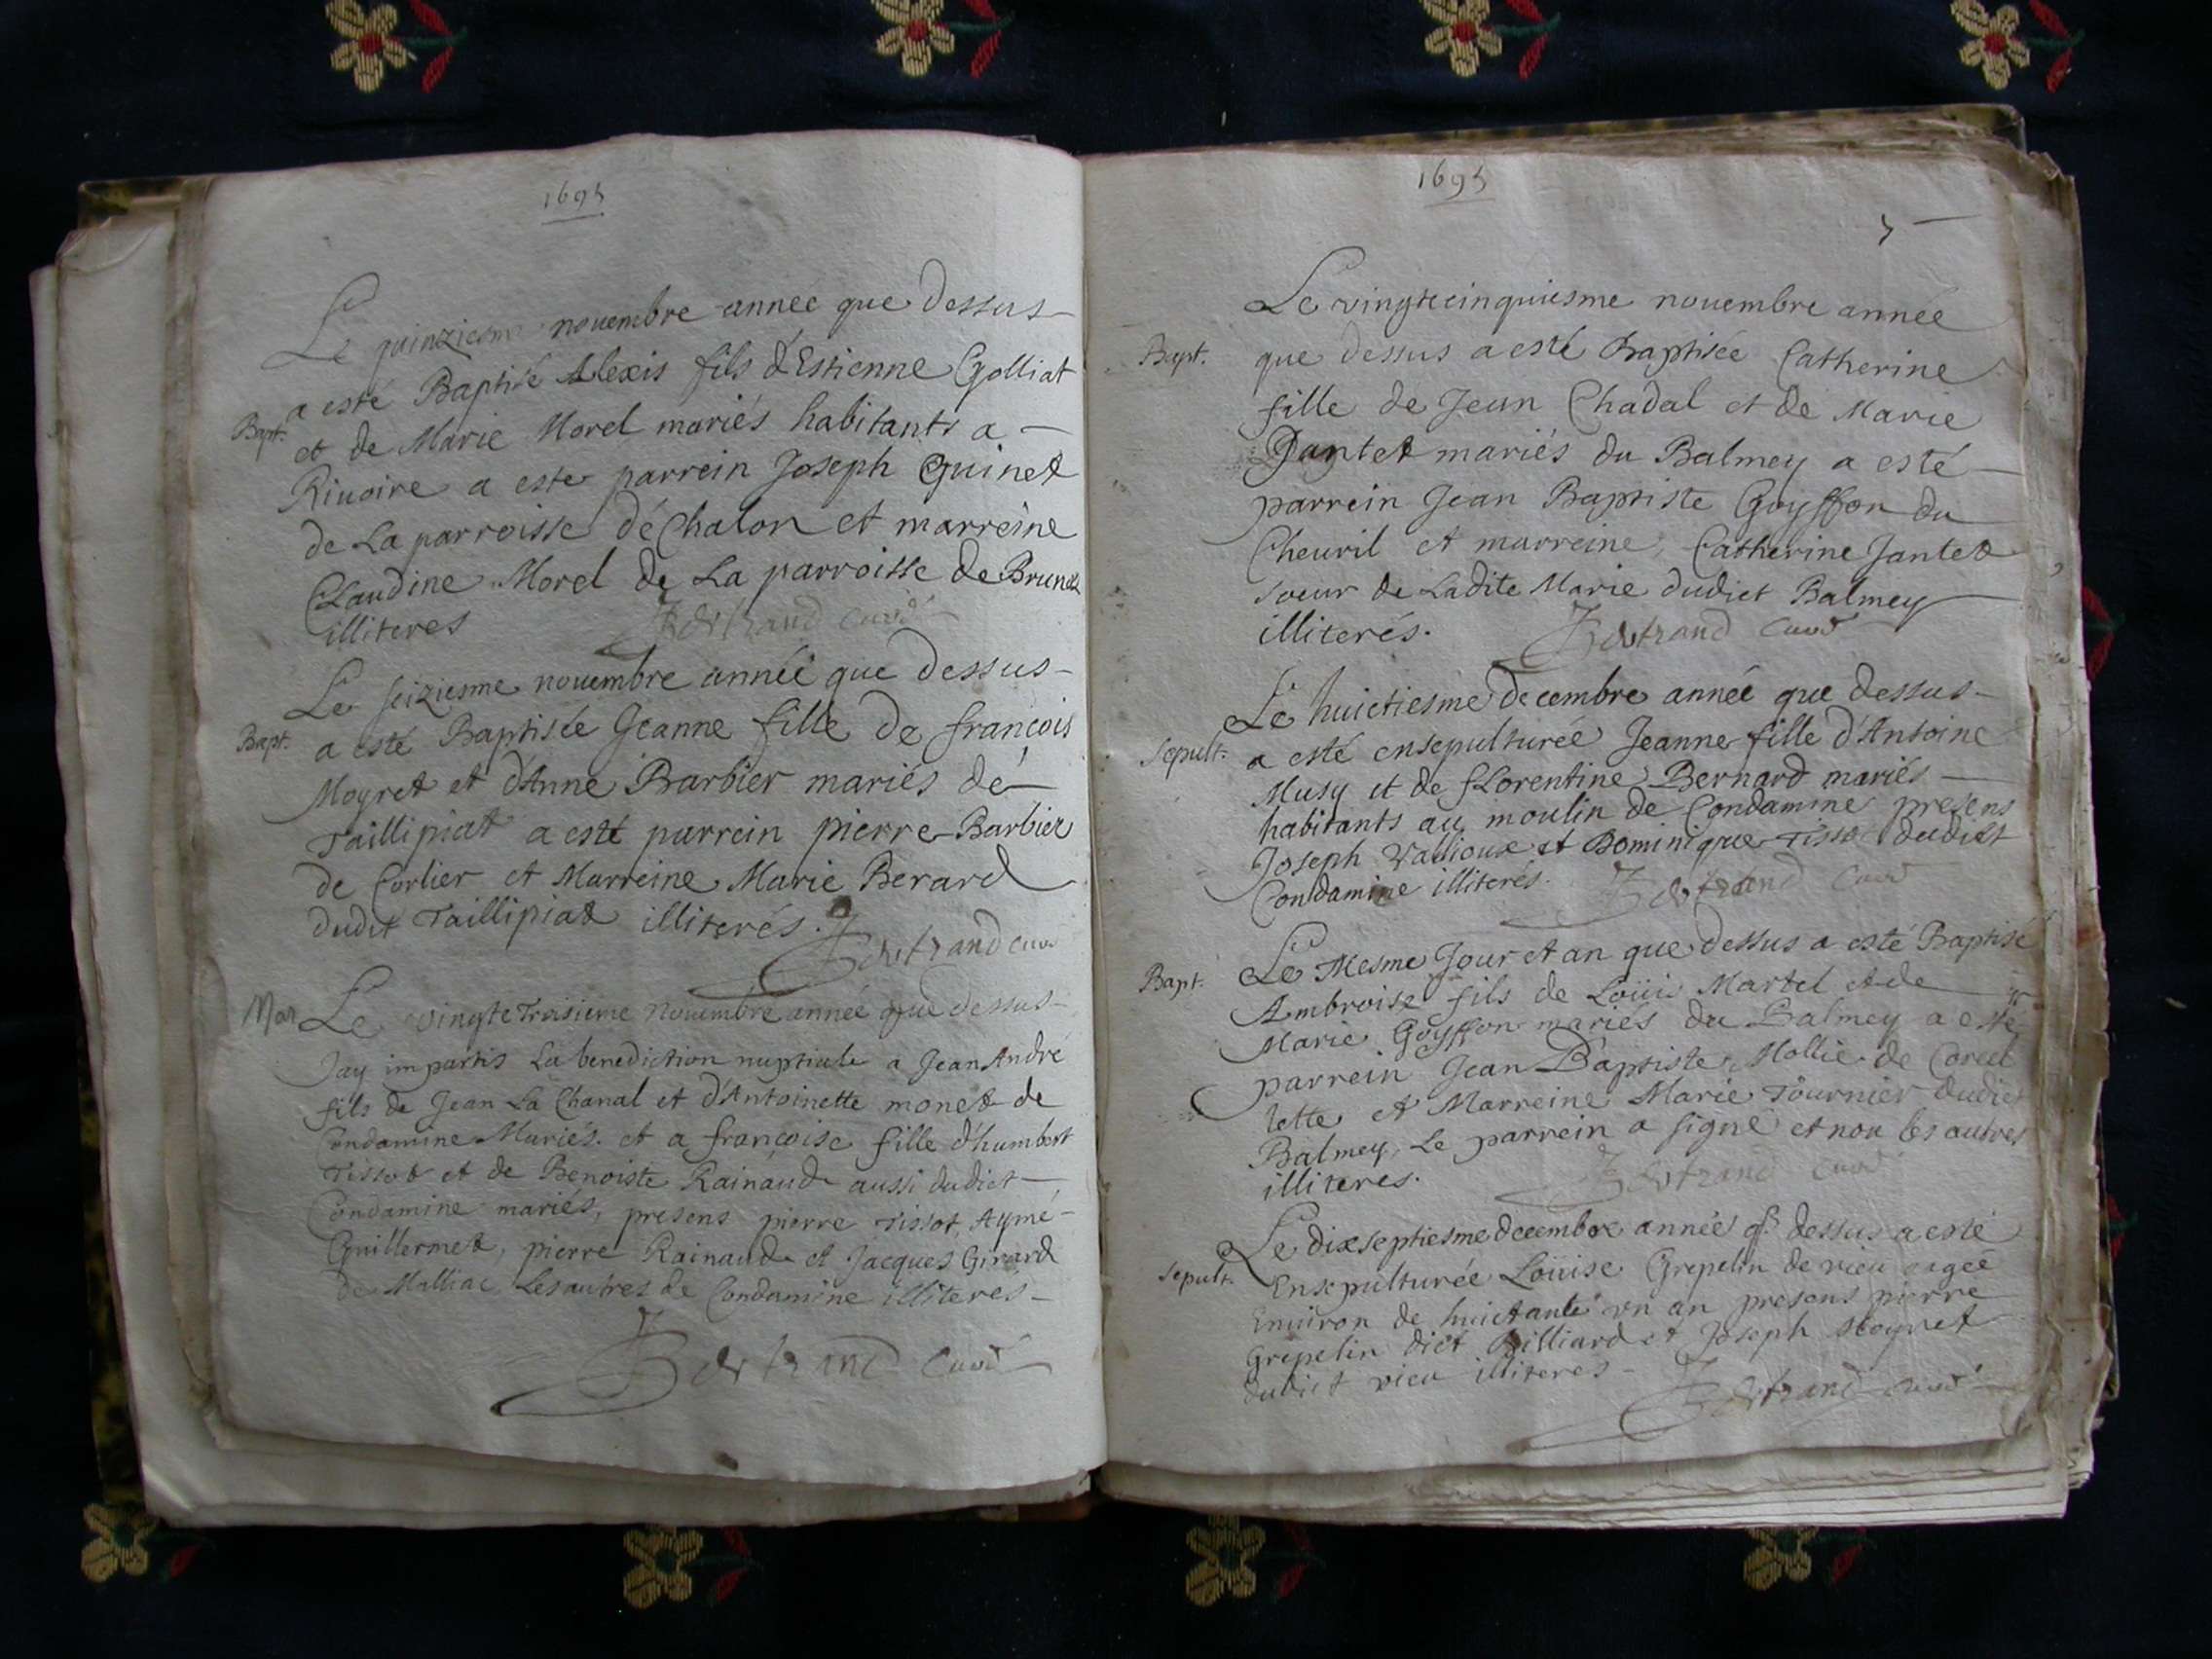 1695
Le quinziesme novembre annee que dessus
Bapt. a esté Baptisé Alexis fils d'Estienne Golliat
et de Marie Morel mariés habitants a
Rivoire a este parrein Joseph Guinet
de La parroisse de Chalon et marreine
Claudine Morel de La parroisse de
illiteres Bertrand curé
Le seiziesme nouembre année que dessus
Bapt. a esté Baptisée Jeanne fille de françois
Moyret et d'Anne Barbier mariés de
Taillipiat a esté parrein pierre Barbier
de Corlier et Marreine Marie Berard
dudit Taillipiat illiterés.
Bertrand curé
Mar. Le vingte Troisieme Nouembre année que dessus
Jay impartis La benediction nuptiale a Jean André
fils de Jean La Chanal et d'Antoinette monet de
Condamine Mariés. et a françoise fille d'humbert
Tissot et de Benoiste Rainaud aussi dudict
Condamine mariés, presens pierre Tissot, Aymé
Guillermet, pierre Rainaud et Jacques Girard
de Malliac Les autres de Condamine illiterés
Bertrand Curé
1695
5
Le vingtecinquiesme nouembre année
Bapt. que dessus a esté Baptisée Catherine
fille de Jean Chadal et de Marie
Jantet mariés du Balmey a esté
parrein Jean Baptiste Goyffon du
Cheuril et marreine, Catherine Jantet
soeur de Ladite Marie dudict Balmey
illiterés. Bertrand Curé
Le huictiesme decembre année que dessus
Sepult. a esté ensepulturée Jeanne fille d'Antoine
Musy et de fLorentine Bernard mariés
habitants au moulin de Condamine presens
Joseph Vallioux et Dominique Tissot dudict
Condamine illiterés. Bertrand Curé
Le Mesme Jour et an que dessus a esté Baptisé
Bapt. Ambroise fils de Loüis Martel et de
Marie Goyffon mariés du Balmey a esté
parrein Jean Baptiste Mollie de Corcel
lette et Marreine Marie Tournier dudict
Balmey, Le parrein a signé et non les autres
illiteres. Bertrand Curé
Le dixseptiesme decembre année q. dessus a esté
Sepult. Ensepulturée Loüise Grepelin de vieu aagée
Enuiron de huictante un an presens pierre
Grepelin dict Billiard et Joseph Moyret
dudict vieu illiteres
Bertrand curé